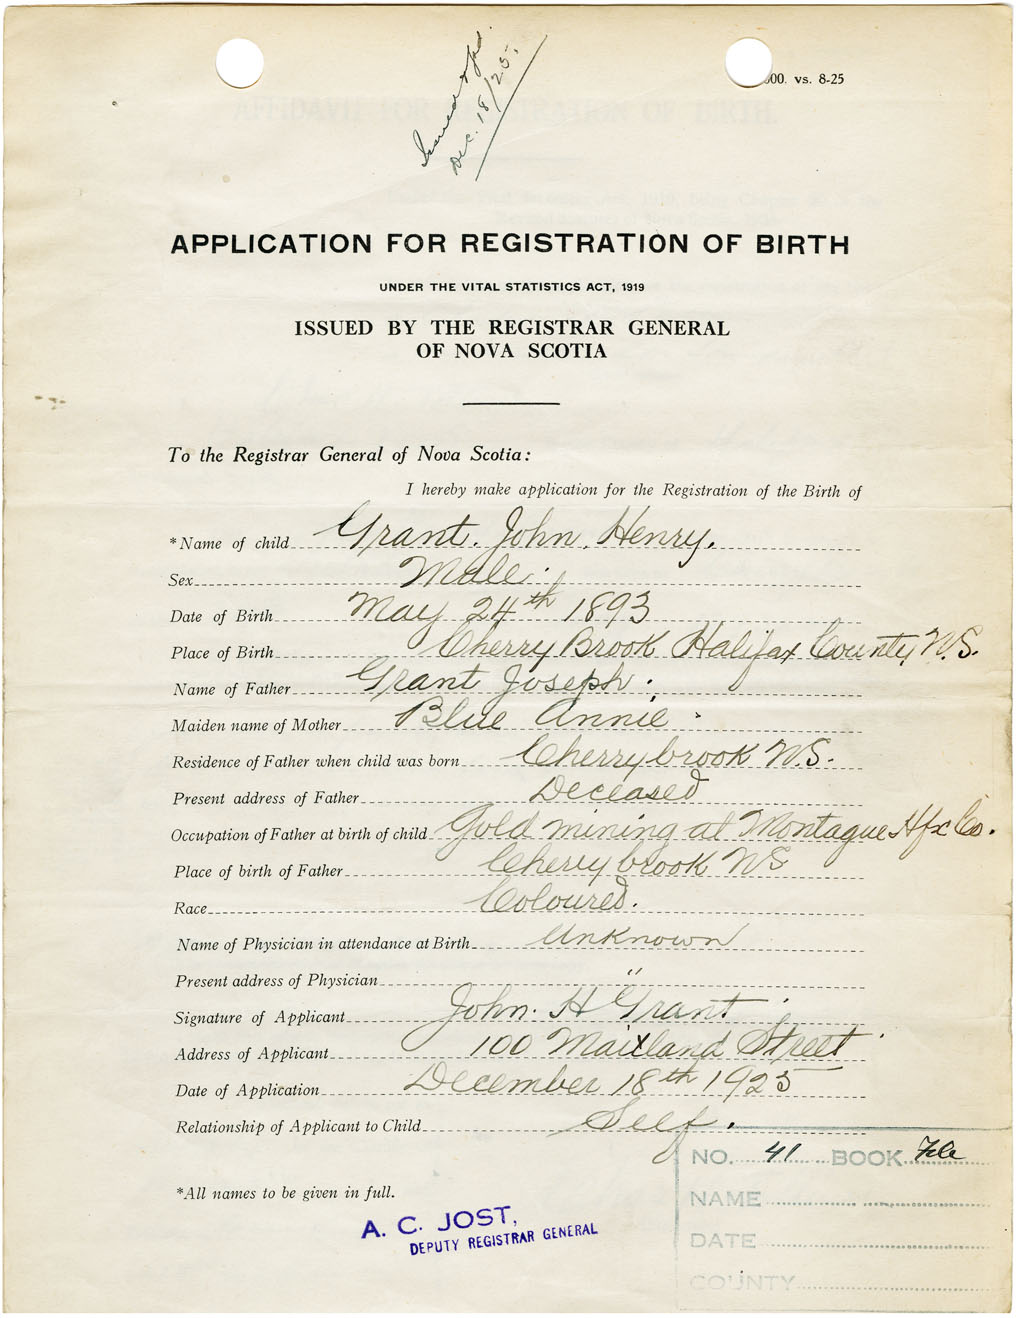 Dec. 18/25.
00. vs. 8-25
APPLICATION FOR REGISTRATION OF BIRTH
UNDER THE VITAL STATISTICS ACT, 1919
ISSUED BY THE REGISTRAR GENERAL
OF NOVA SCOTIA
To the Registrar General of Nova Scotia:
I hereby make application for the Registration of the Birth of
*Name of child Grant. John. Henry.
Sex Male.
Date of Birth May 24th 1893
Place of Birth Cherry Brook Halifax County N.S.
Name of Father Grant Joseph.
Maiden name of Mother Blue Annie.
Residence of Father when child was born Cherrybrook N.S.
Present address of Father Deceased
Occupation of Father at birth of child Gold mining at Montague Hfx Co.
Place of birth of Father Cherrybrook NS
Race Coloured.
Name of Physician in attendance at Birth Unknown
Present address of Physician "
Signature of Applicant John. H Grant.
Address of Applicant 100 Maitland Street
Date of Application December 18th 1925
Relationship of Applicant to Child Self.
NO. 41 BOOK
*All names to be given in full.
NAME
A. C. JOST,
DEPUTY REGISTRAR GENERAL
DATE
COUNTY